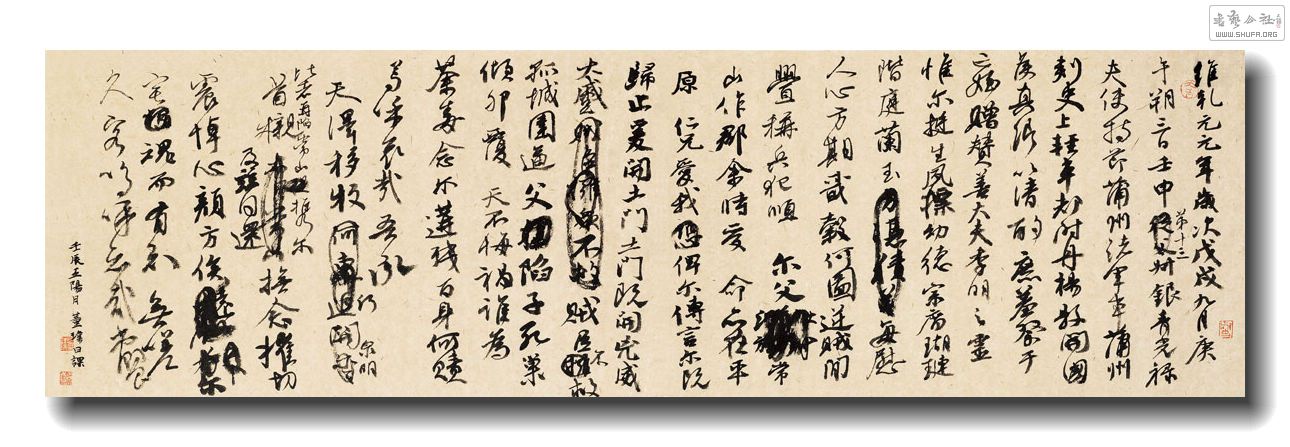 維乾元元年歲次戊戌九月庚
午朔三日壬申第十三從父銀青光祿
夫使持節蒲州諸軍事蒲州
刺史上輕車都尉丹楊縣開國
侯真卿以清酌庶羞祭于
亡姪贈贊善大夫季明之靈
惟爾挺生夙標幼德宗廟瑚璉
階庭蘭玉每慰
人心方期戩穀何圖逆賊間
釁稱兵犯順 爾父 常
山作郡余時受 命亦在平
原 仁兄愛我 俾爾傳言爾既
歸止爰開土門土門既開凶威
大蹙賊臣不救
孤城圍逼 父陷子死巢
傾卵覆 天不悔禍誰為
荼毒念爾遘殘百身何贖
嗚呼哀哉吾承
天澤移牧河關 泉明
比者再陷常山攜爾
首櫬及並同還撫念摧切
震悼心顏方俟 爾
宅魂而有知無嗟
久客嗚呼哀哉尚饗
壬辰五陽月 董 日課
書藝公社
WWW.SHUFA.ORG